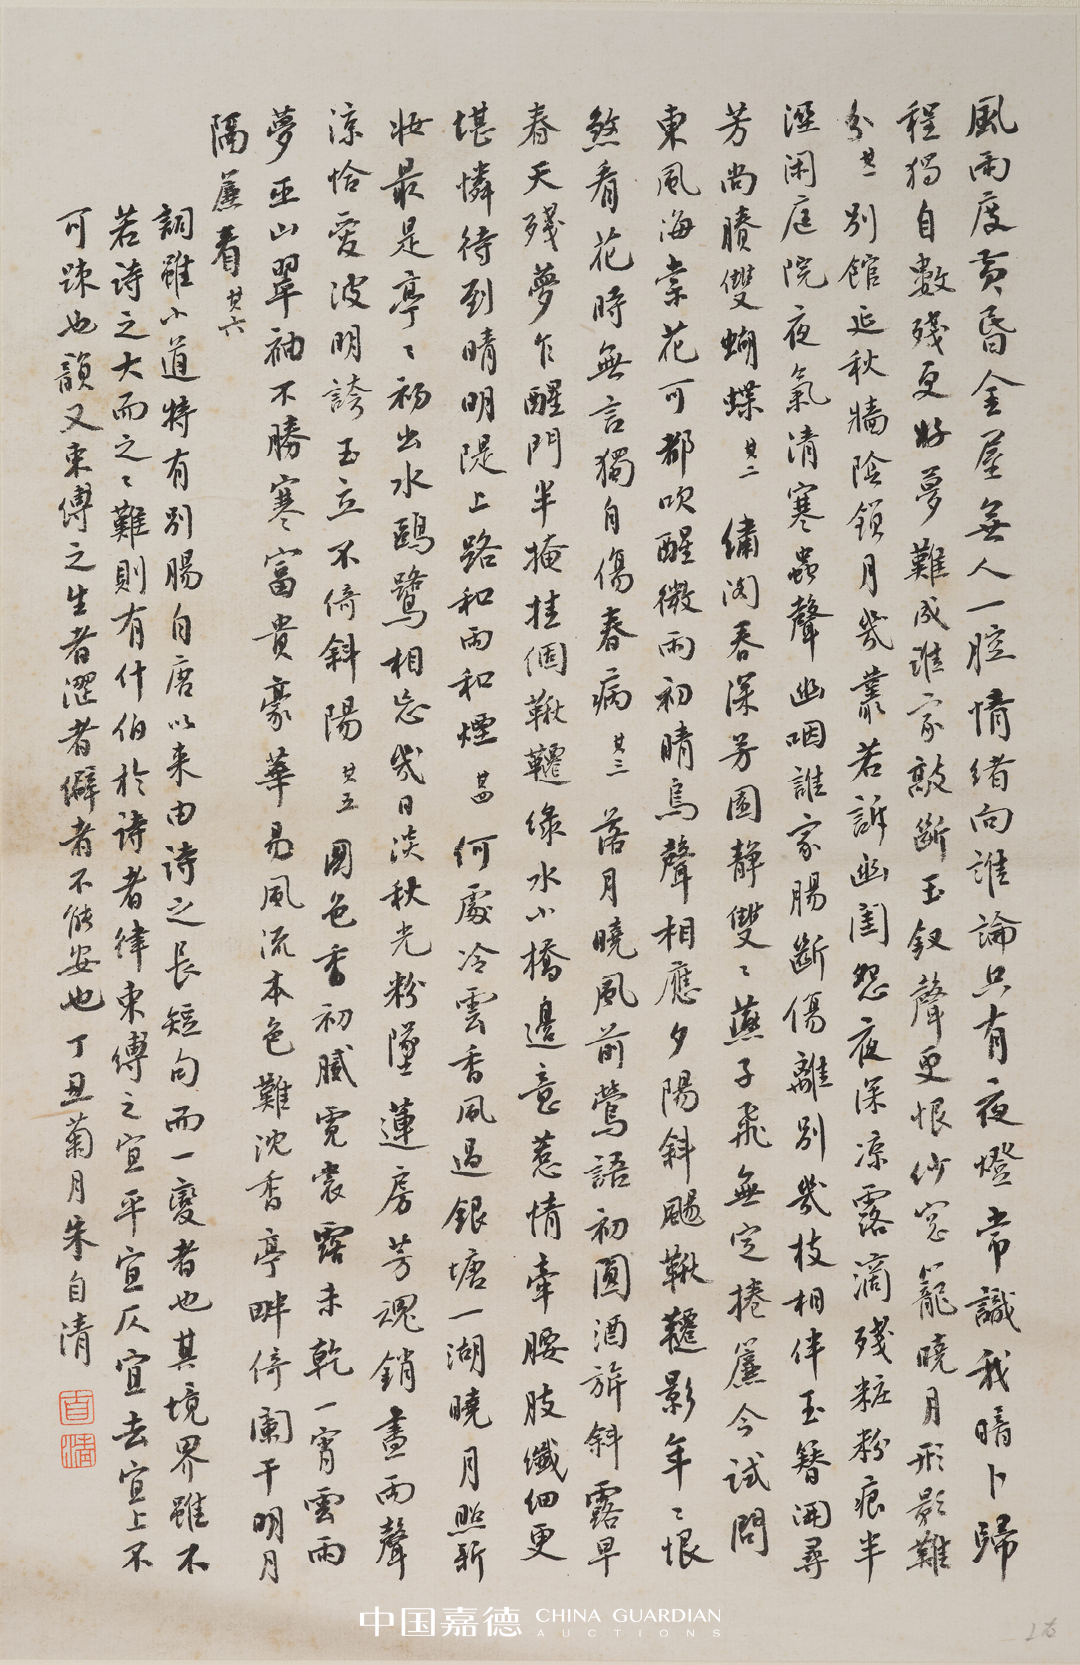 風雨度黃昏金屋無人一腔情緒向誰論只有夜燈常識我暗卜歸
程獨自數殘更好夢難成誰家敲斷玉釵聲更恨紗窓籠曉月形影難
分其一別館延秋牆陰鎖月幾叢若訴幽閨怨夜深涼露滴殘粧粉痕半
溼閑庭院夜氣清寒蟲聲幽咽誰家腸斷傷離別幾枝相伴玉簪開尋
芳尚賸雙蝴蝶其二 繡閣春深芳園靜雙〻燕子飛無定捲簾今試問
東風海棠花可都吹醒微雨初晴鳥聲相應夕陽斜颺鞦韆影年〻恨
煞看花時無言獨自傷春病其三 落月曉風前鶯語初圓酒旂斜露早
春天殘夢乍醒門半掩挂個鞦韆綠水小橋邊意惹情牽腰肢纖細更
堪憐待到晴明隄上路和雨和煙其四 何處冷雲香風過銀塘一湖曉月照新
妝最是亭〻初出水鷗鷺相忘幾日淡秋光粉墜蓮房芳魂銷盡雨聲
涼恰愛波明誇玉立不倚斜陽其五國色香初膩霓裳露未乾一宵雲雨
夢巫山翠袖不勝寒富貴豪華易風流本色難沈香亭畔倚闌干明月
隔簾看其六
詞雖小道特有別腸自唐以來由詩之長短句而一變者也其境界雖不
若詩之大而之〻難則有什伯於詩者律束縛之宜平宜仄宜去宜上不
可踈也韻又束縛之生者澀者僻者不能安也丁丑菊月朱自清
自清
中国嘉德 CHINA GUARDIAN
AUCTIONS